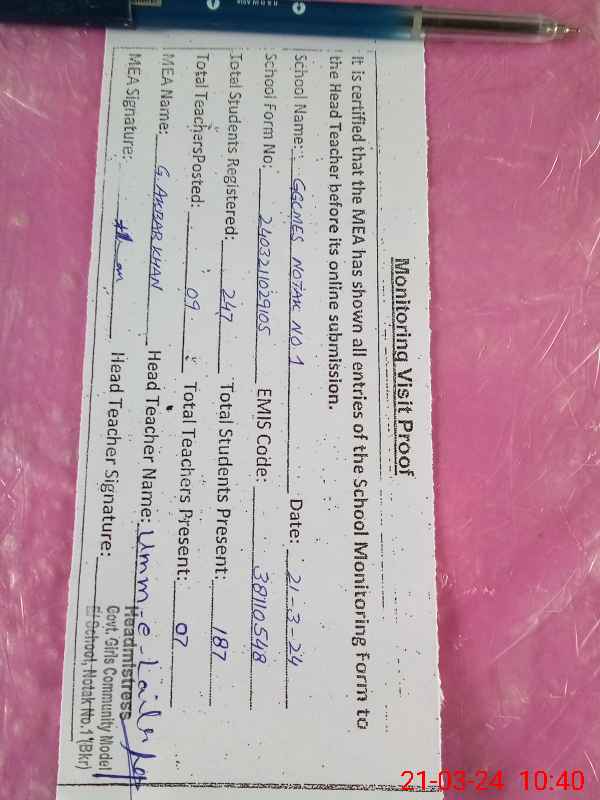 Monitoring Visit Proof
It is certified that the MEA has shown all entries of the School Monitoring Form to
the Head Teacher before its online submission.
School Name: GGCMES NOTAK NO 1 Date: 21-3-24
School Form No: 240321029105 EMIS Code: 38110548
Total Students Registered: 247 Total Students Present: 187
Total TeachersPosted: 09 Total Teachers Present: 07
MEA Name: G. AKBAR KHAN Head Teacher Name: Umm-e-Laila
MEA Signature: Head Teacher Signature:
Headmistress
Govt. Girls Community Model
El School, Notak No.1 (Bkr)
21-03-24 10:40